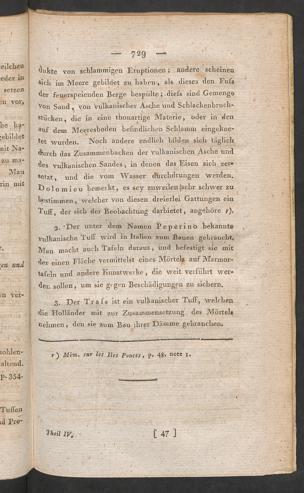 — 729 —
dukte von schlammigen Eruptionen; andere scheinen
sich im Meere gebildet zu haben, als dieses den Fuſs
der feuerspeienden Berge bespülte; dieſs sind Gemenge
von Sand, von vulkanischer Asche und Schlackenbruch-
stücken, die in eine thonartige Materie, oder in den
auf dem Meeresboden befindlichen Schlamm eingekne-
tet wurden. Noch andere endlich bilden sich täglich
durch das Zusammenbacken der vulkanischen Asche und
des vulkanischen Sandes, in denen das Eisen sich zer-
setzt, und die vom Wasser durchdrungen werden.
Dolomieu bemerkt, es sey zuweilen sehr schwer zu
bestimmen, welcher von diesen dreierlei Gattungen ein
Tuff, der sich der Beobachtung darbietet, angehöre r).
2. Der unter dem Namen Peperino bekannte
vulkanische Tuff wird in Italien zum Bauen gebraucht.
Man macht auch Tafeln daraus, und befestigt sie mit
der einen Fläche vermittelst eines Mörtels auf Marmor-
tafeln und andere Kunstwerke, die weit verführt wer-
den sollen, um sie gegen Beschädigungen zu sichern.
3. Der Traſs ist ein vulkanischer Tuff, welchen
die Holländer mit zur Zusammensetzung des Mörtels
nehmen, den sie zum Bau ihrer Dämme gebrauchen.
r) Mém. sur les Iles Ponces, p. 48. note 1.
Theil IV. [ 47 ]